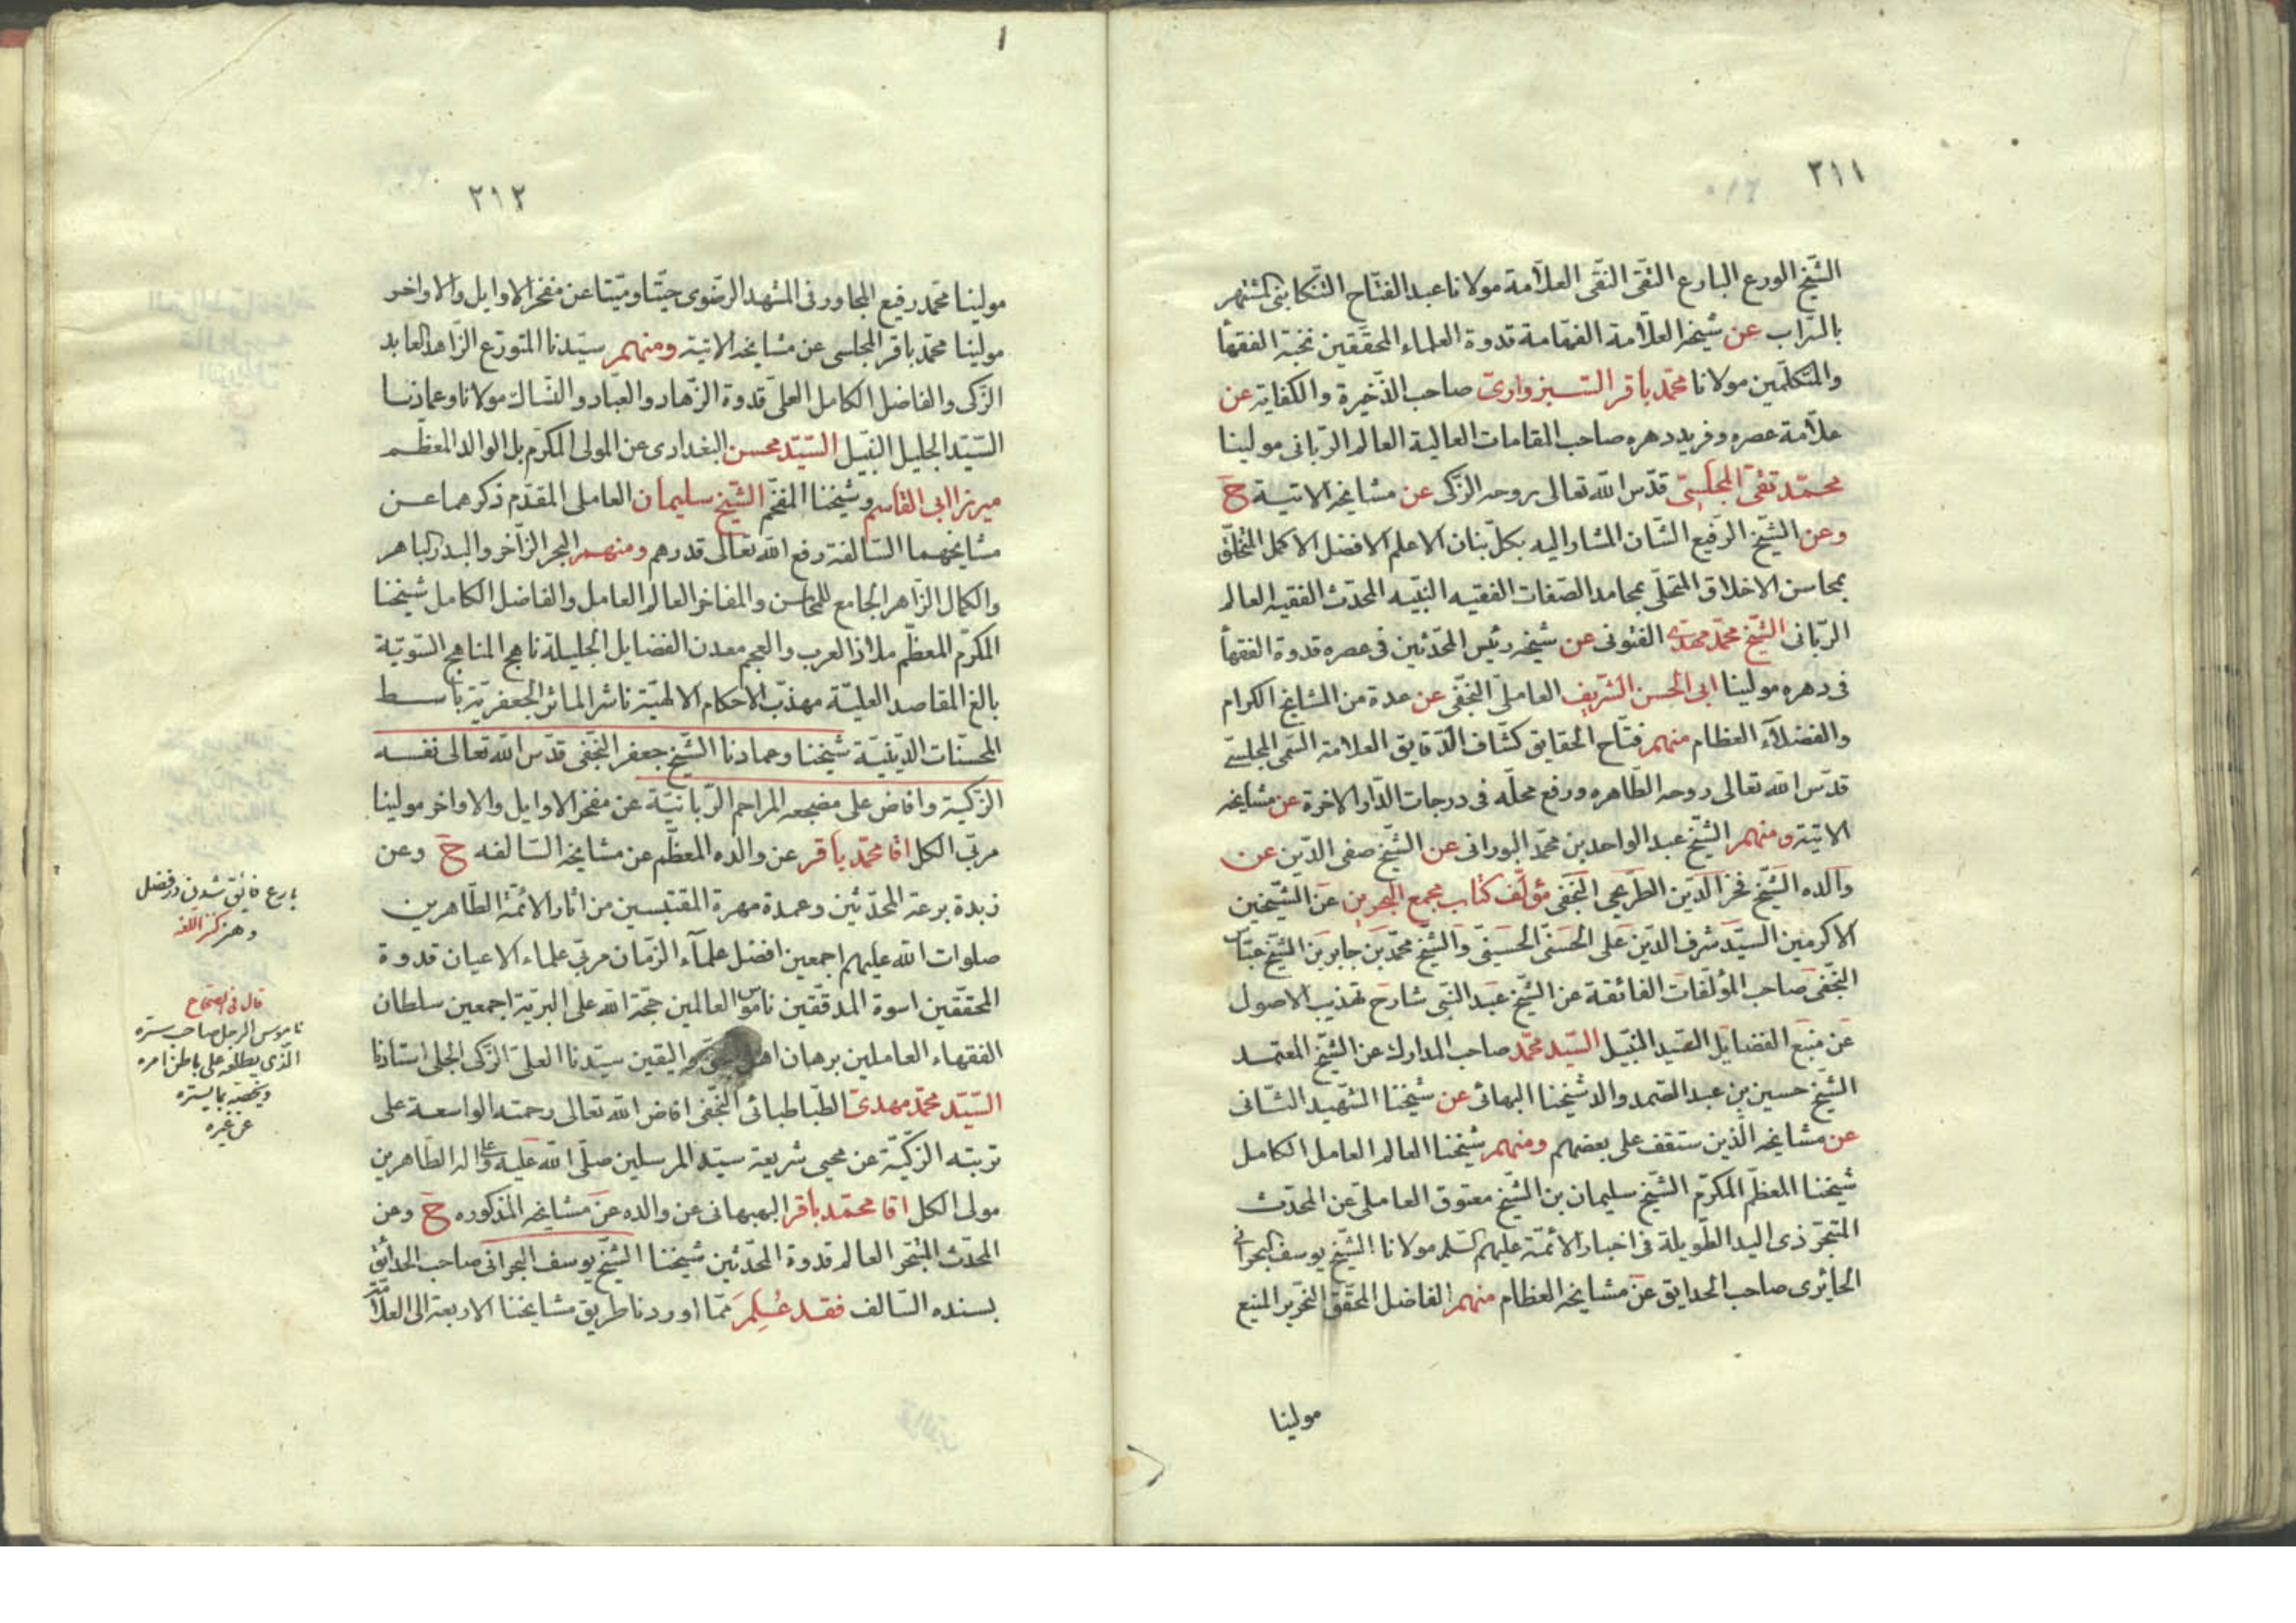 ٢١١
الشّيخ الورع البارع التّقى النّقى العلّامة مولانا عبد الفتّاح التّنكابنى المشتهر
بالسّراب عن شيخه العلّامة الفهّامة قدوة العلماء المحقّقين نخبة الفقهآ
والمتكلّمين مولانا محمّد باقر السّبزوارىّ صاحب الذّخيرة والكفاية عن
علّامة عصره وفريد دهره صاحب المقامات العالية العالم الربّانى مولينا
محمّد تقىّ المجلسىّ قدّس الله تعالى روحه الزّكى عن مشايخه الاتية ح
وعن الشّيخ الرّفيع الشّان المشار اليه بكلّ بنان الاعلم الافضل الاكمل المتخلّق
بمحاسن الاخلاق المتحلّى بمحامد الصّفات الفقيه النّبيه المحدّث الفقيه العالم
الربّانى الشّيخ محمّد مهدى الفتونى عن شيخه رئيس المحدّثين فى عصره قدوة الفقهآ
فى دهره مولينا ابى الحسن الشّريف العاملىّ النّجفى عن عدة من المشايخ الكرام
والفضلآء العظام منهم فتّاح الحقايق كشّاف الدّقايق العلامة السّمى المجلسىّ
قدّس الله تعالى روحه الطّاهره ورفع محلّه فى درجات الدّار الاخرة عن مشايخه
الاتية ومنهم الشّيخ عبد الواحد بن محمّد البورانى عن الشّيخ صفى الدّين عن
والده الشّيخ فخر الدّين الطّريحى النّجفى مؤلّف كتاب مجمع البحرين عن الشّيخين
الاكرمين السيّد شرف الدّين على الحسنى الحسينىّ والشّيخ محمّد بن جابر بن الشّيخ عبّاس
النّجفى صاحب المؤلّفات الفائقة عن الشّيخ عبد النّبى شارح تهذيب الاصول
عن منبع الفضايل السّيد النّبيل السّيد محمّد صاحب المدارك عن الشّيخ المعتمد
الشّيخ حسين بن عبد الصّمد والد شيخنا البهائى عن شيخنا الشّهيد الثّانى
عن مشايخه الّذين ستقف على بعضهم ومنهم شيخنا العالم العامل الكامل
شيخنا المعظّم المكرّم الشّيخ سليمان بن الشّيخ معتوق العاملىّ عن المحدّث
المتبحّر ذى اليد الطّويلة فى اخبار الائمّة عليهم السّلم مولانا الشّيخ يوسف البحرانى
الحايرى صاحب الحدايق عن مشايخه العظام منهم الفاضل المحقّق النّحرير المنيع
مولينا
٢١٢
مولينا محمّد رفيع المجاور فى المشهد الرّضوى حيّا وميّتا عن مفخر الاوايل والاواخر
مولينا محمّد باقر المجلسى عن مشايخه الاتية ومنهم سيّدنا المتورّع الزّاهد العابد
الزّكى والفاضل الكامل العلىّ قدوة الزّهاد والعبّاد والنسّاك مولانا وعمادنا
السّيّد الجليل النّبيل السّيّد محسن البغدادى عن المولى المكرّم بل الوالد المعظّم
ميرزا ابى القاسم وشيخنا المفخّم الشّيخ سليمان العاملى المقدّم ذكرهما عن
مشايخهما السّالفة رفع الله تعالى قدرهم ومنهم البحر الزّاخر والبدر الباهر
والكمال الزّاهر الجامع للمحاسن والمفاخر العالم العامل والفاضل الكامل شيخنا
المكرّم المعظّم ملاذ العرب والعجم معدن الفضايل الجليلة ناهج المناهج السّويّة
بالغ المقاصد العليّة مهذّب الاحكام الالهيّة ناشر الماثر الجعفريّة باسط
المحسّنات الدّينيّة شيخنا وعمادنا الشّيخ جعفر النّجفى قدّس الله تعالى نفسه
الزّكيّة وافاض على مضجعه المراحم الرّبانيّة عن مفخر الاوايل والاواخر مولينا
مربّى الكل اقا محمّد باقر عن والده المعظّم عن مشايخه السّالفه ح وعن
زبدة برعة المحدّثين وعمدة مهرة المقتبسين من اثار الائمّة الطّاهرين
صلوات الله عليهم اجمعين افضل علمآء الزّمان مربّى علماء الاعيان قدوة
المحقّقين اسوة المدقّقين ناموس العالمين حجّة الله على البريّة اجمعين سلطان
الفقهاء العاملين برهان اهل واليقين سيّدنا العلىّ الزّكى الجلى استادنا
السّيّد محمّد مهدىّ الطّباطبائى النّجفى افاض الله تعالى رحمته الواسعة على
تربته الزّكيّة عن محيى شريعة سيّد المرسلين صلّى الله عليه وعلى اله الطّاهرين
مولى الكل اقا محمّد باقر البهبهانى عن والده عن مشايخه المذكوره ح وعن
المحدّث المتبحّر العالم قدوة المحدّثين شيخنا الشّيخ يوسف البحرانى صاحب الحدائق
بسنده السّالف فقد عُلِمَ ممّا اوردنا طريق مشايخنا الاربعة الى العلّامة
بارع فائق شدن در فضل
وهنر كنز اللّغه
قال فى الصّحاح
ناموس الرجل صاحب سرّه
الّذى يطلعه على باطن امره
ويخصّه بما يستره
عن غيره